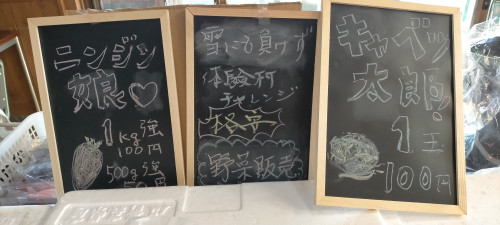 ニンジン
娘♡
1kg強
100円
500g強
50円
雪にも負けず
体験村
チャレンジ
格安
野菜販売
キャベツ
太郎
1玉
100円